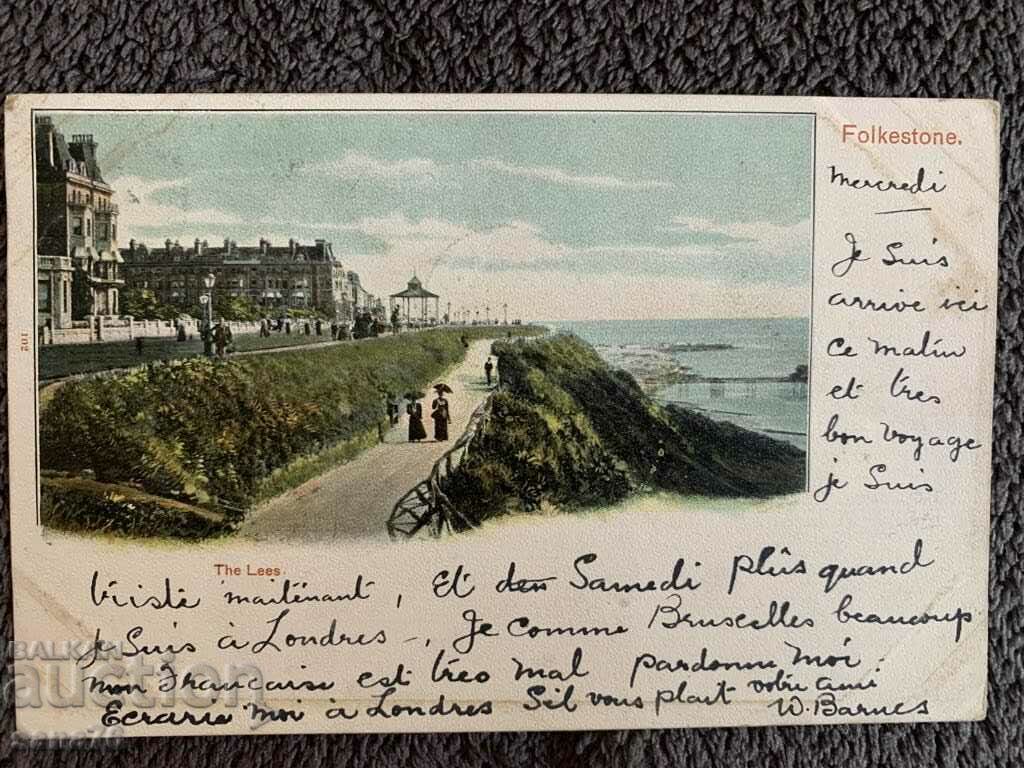 Folkestone.
Mercredi
Je Suis
arrive ici
ce matin
et très
bon voyage
je Suis
102
The Lees.
triste maiténant, Et den Samedi plûs quand
Je Suis à Londres -, Je comme Bruxelles beaucoup
mon Française est très mal pardonne Moi.
Ecrarie moi à Londres Sil vous plait votre ami
W. Barnes
BALKAN
auction
sana76